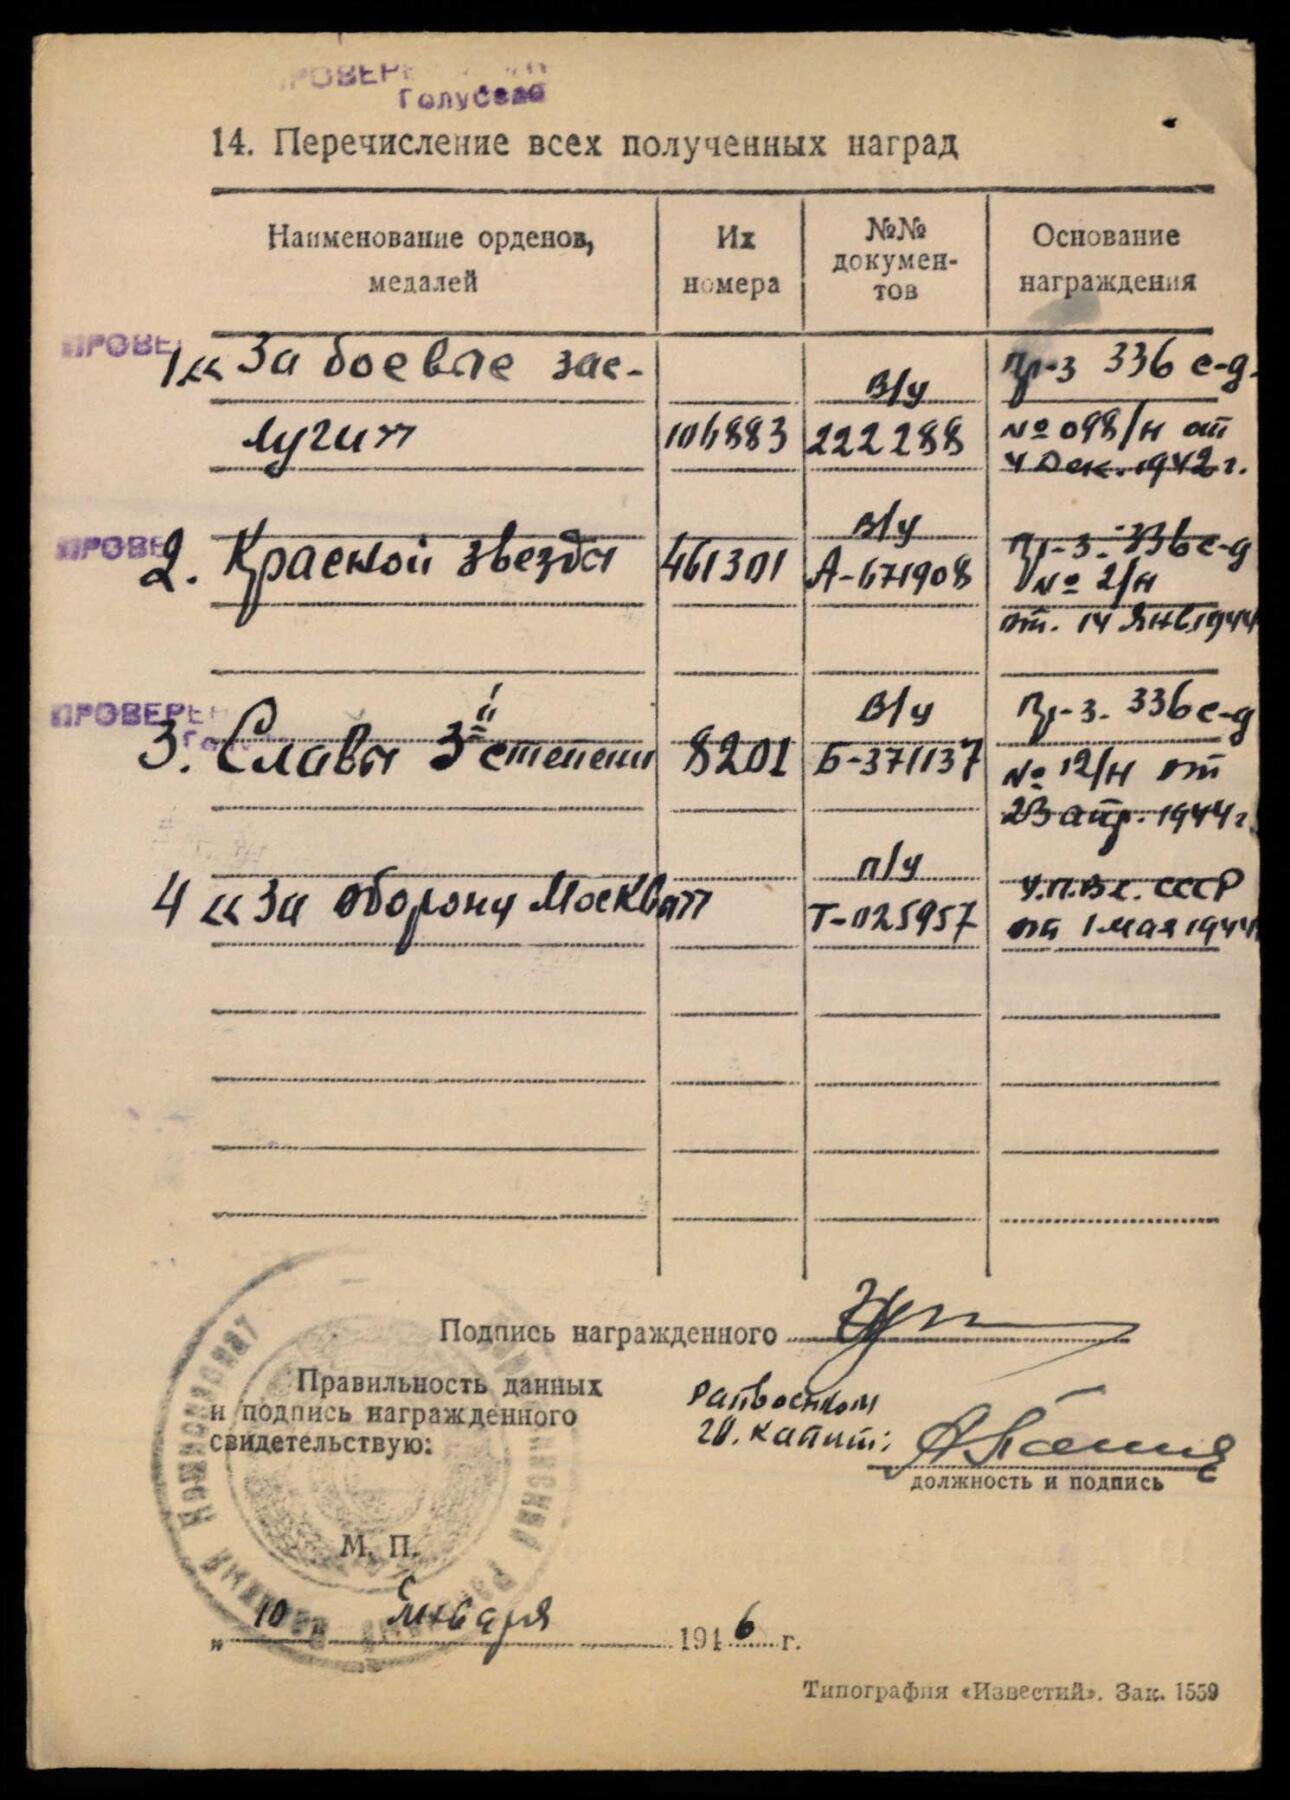 Голубева
14. Перечисление всех полученных наград
Наименование орденов, медалей
Их номера
№№ докумен-тов
Основание награждения
1 « За боевые зас-
луги"
106883
в/у
222288
Пр-з 336 с-д.
№ 098/н от
4 Дек. 1942 г.
2. Красной звезды
461301
в/у
А-671908
Пр-з. 336 с-д
№ 2/н
от. 14 Янв. 1944
3. Славы 3й степени
8201
в/у
Б-371137
Пр-з. 336 с-д
№ 12/н от
23 апр. 1944 г.
4 « За оборону Москвы"
п/у
Т-025957
У.П.В.С. СССР
от 1 мая 1944
Подпись награжденного
Правильность данных
и подпись награжденного
свидетельствую:
Райвоенком
гв. капит:
должность и подпись
М. П.
„ 10 Января 1946 г.
Типография «Известий». Зак. 1559